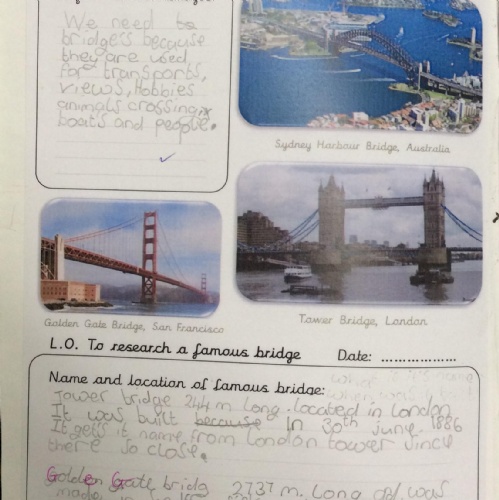 We need to
bridges because
they are used
for transports,
views, Hobbies
animals crossing,
boats and people.
Sydney Harbour Bridge, Australia
Golden Gate Bridge, San Francisco
Tower Bridge, London
L.O. To research a famous bridge Date: ..................
Name and location of famous bridge:
Tower bridge 244 m long. located in London
It was built because in 30th june 1886
It gets it name from London tower since
there so close.
Golden Gate bridg 2737 m. Long was